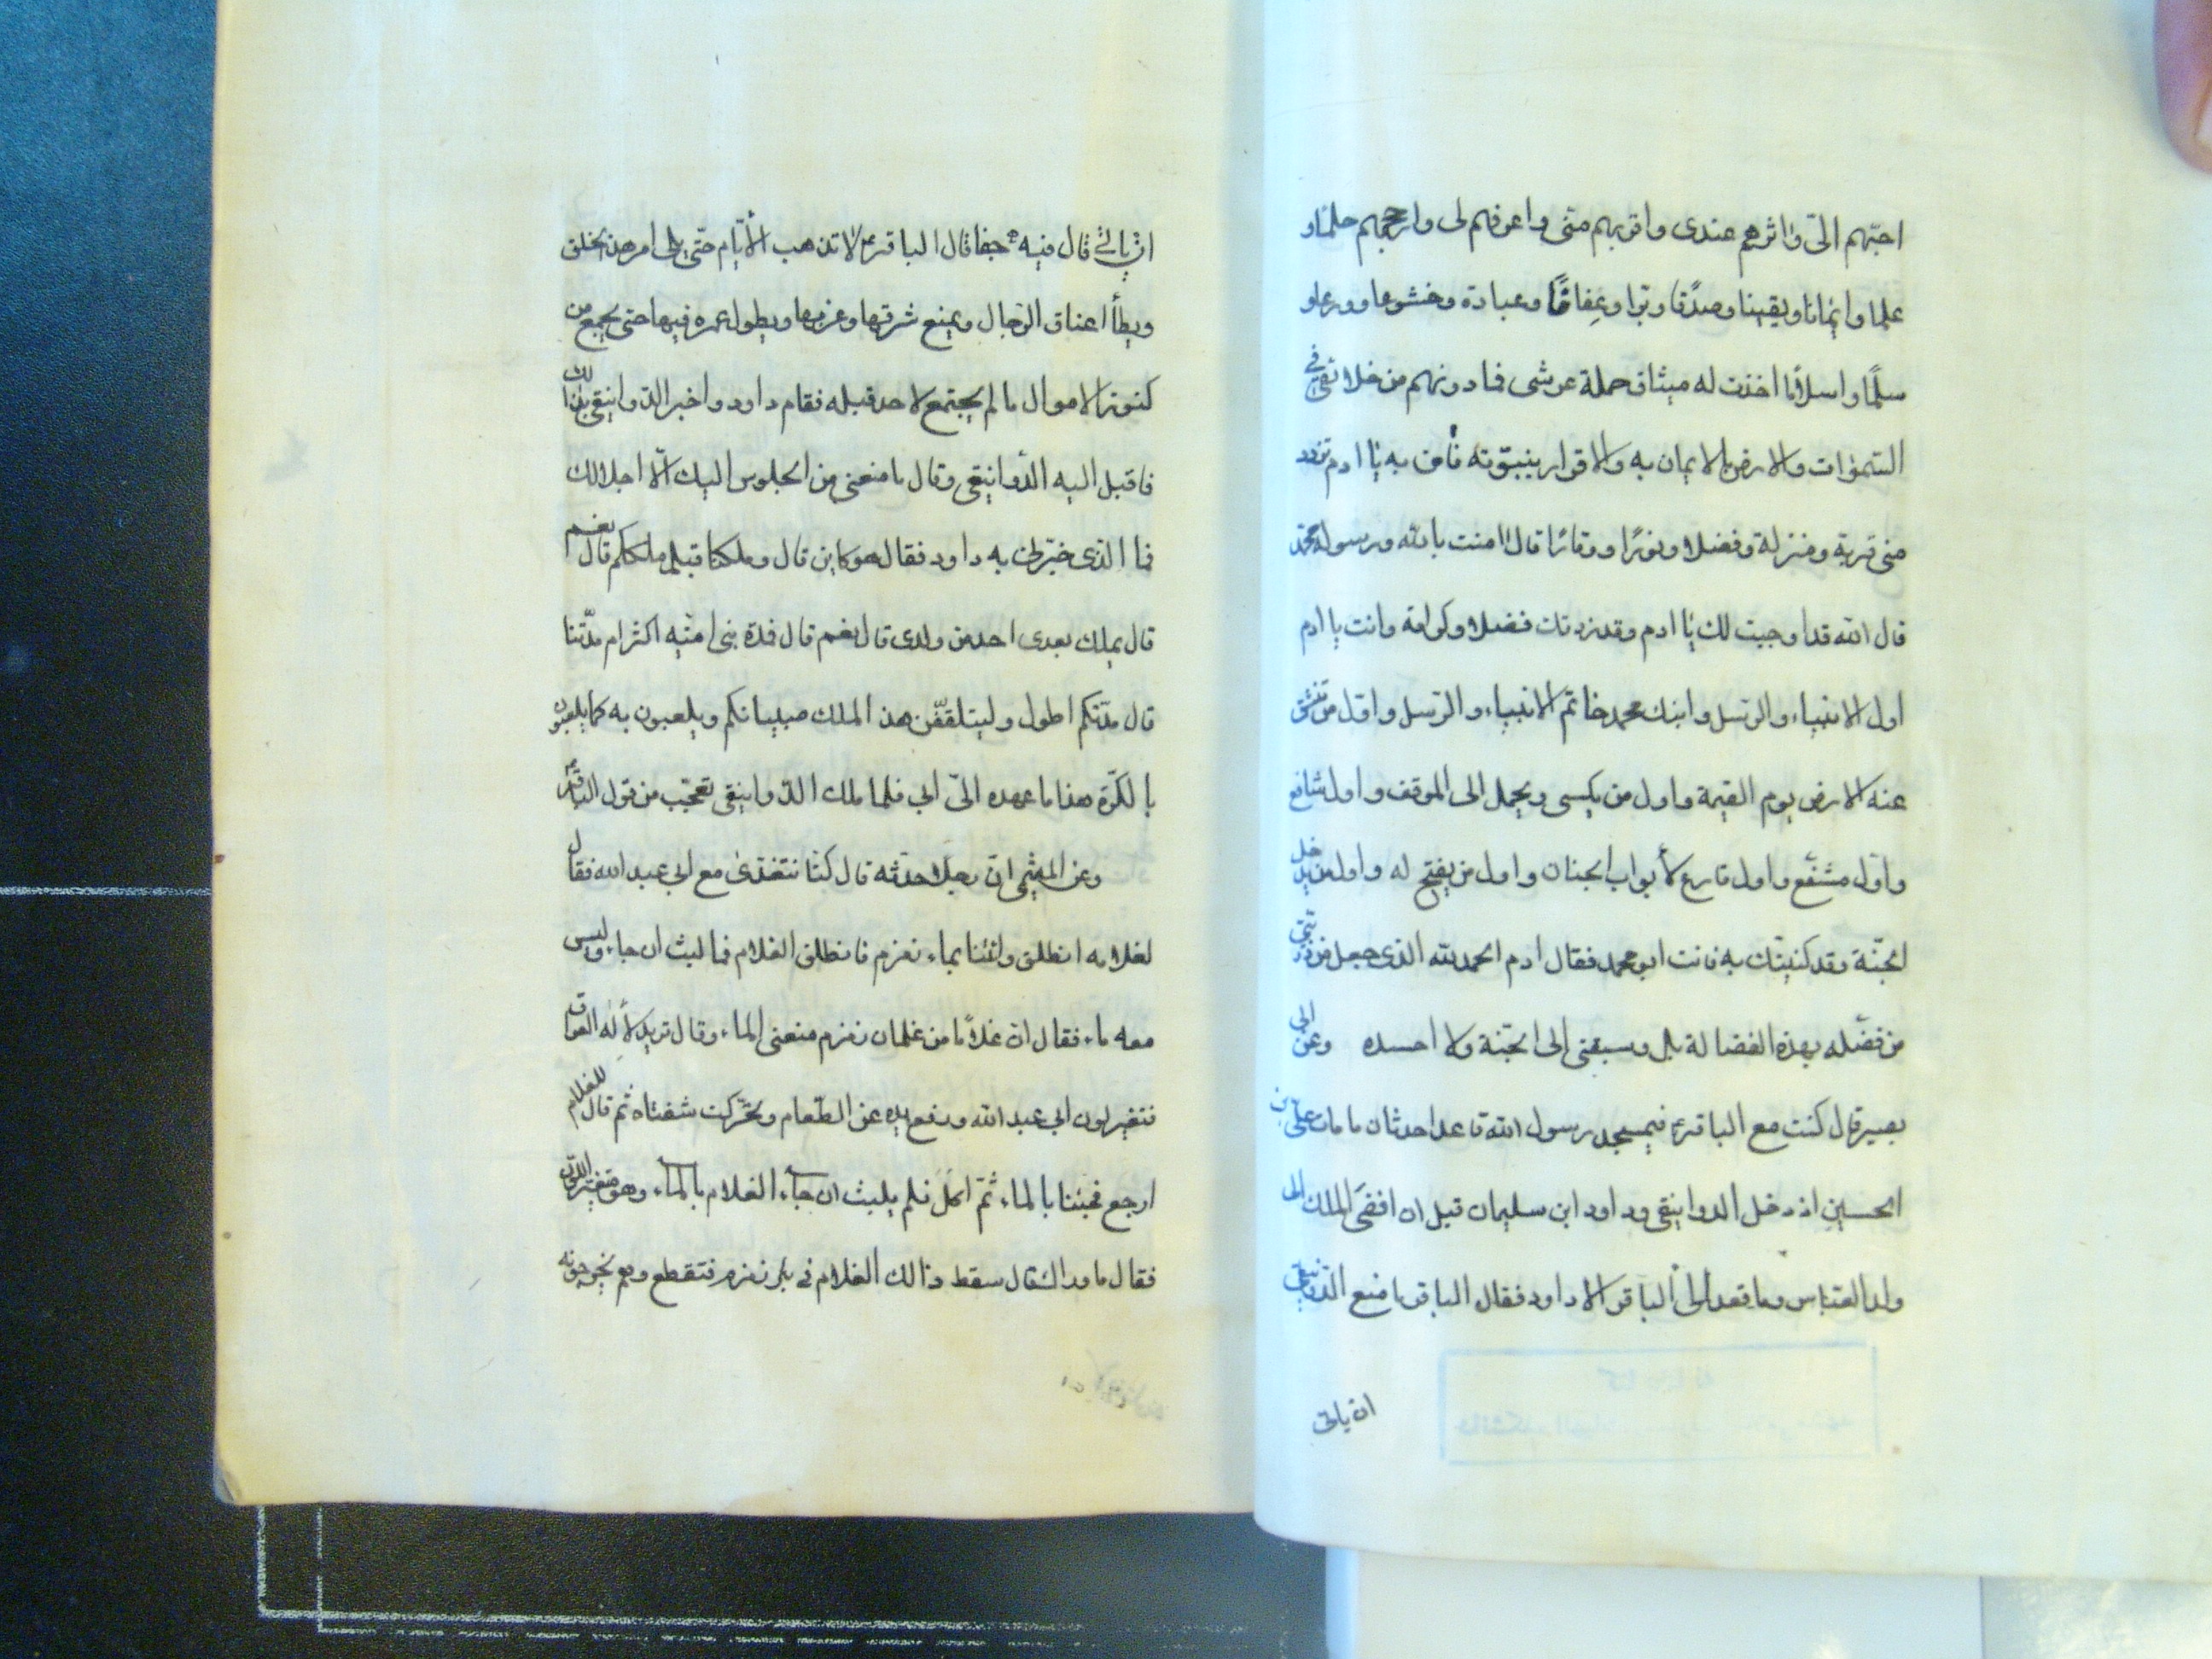 احبّهم الىّ واثرهم عندى واقربهم منّى واعرفهم لى وارجحهم حلمًا و
علما وايمانا ويقينا وصدقا وبرا وعفافًا وعبادة وخشوعا وورعا و
سلمًا واسلامًا اخذت له ميثاق حملة عرشى فما دونهم من خلائقى فى
السّموات والارض بالايمان به والاقرار بنبوّته فأمن به يا ادم تزدد
منى قربة ومنزلة وفضلا ونورًا ووقارًا قال امنت بالله ورسوله محمّد
قال الله قد اوجبت لك يا ادم وقد زدتك فضلا وكرامة وانت يا ادم
اول الانبياء والرّسل وابنك محمد خاتم الانبياء والرّسل واوّل من تنشق
عنه الارض يوم القيمة واول من يكسى ويحمل الى الموقف واول شافع
واوّل مشفّع واول قارع لأبواب الجنان واول من يفتح له واول من يدخل
الجنّة وقد كنيتك به فانت ابو محمد فقال ادم الحمد لله الذى جعل من ذريّتى
من فضّله بهذه الفضالة وسبقنى الى الجنّة ولا احسده وعن ابى
بصير قال كنت مع الباقرع فى مسجد رسول الله قاعدا حدثان ما مات علىّ بن
الحسين اذ دخل الدوانيقى وداود ابن سليمان قبل ان افضى الملك الى
ولد العبّاس وما قعد الى الباقر الا داود فقال الباقر ما منع الدّوانيقى
ان ياتى
ان ياتى قال فيه جفا قال الباقرع لا تذهب الأيّام حتّى يلى امر هذ الخلق
ويطأ اعناق الرّجال ويمنع شرقها وغربها ويطول عمره فيها حتى يجمع من
كنوز الاموال ما لم يجتمع لاحد قبله فقام داود واخبر الدّوانيقى بذالك
فاقبل اليه الدّوانيقى وقال ما منعنى من الجلوس اليك الّا اجلالك
فما الذى خبّرنى به داود فقال هو كاين قال وملكنا قبل ملككم قال نعم
قال يملك بعدى احد من ولدى قال نعم قال فمدّة بنى اميّه اكثر ام مدّتنا
قال مدّتكم اطول وليتلقفّن هذ الملك صبيانكم ويلعبون به كما يلعبون
بالكرّة هذا ما عهده الىّ ابى فلما ملك الدّوانيقى تعجّب من قول الباقرع
وعن الميثمى انّ رجلا حدّثه قال كنّا نتغدّى مع ابى عبد الله فقال
لغلامه انطلق وائتنا بماء زمزم فانطلق الغلام فما لبث ان جاء وليس
معه ماء فقال انّ غلامًا من غلمان زمزم منعنى الماء وقال تريد لأله العراق
فتغير لون ابى عبد الله ورفع يده عن الطّعام وتحرّكت شفتاه ثم قال للغلام
ارجع فجئنا بالماء ثمّ اكل فلم يلبث ان جاء الغلام بالماء وهو متغيّر اللّون
فقال ما وراك قال سقط ذالك الغلام فى بئر زمزم فتقطع وهم يخرجونه